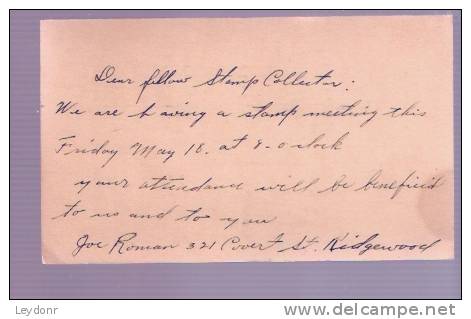 Dear fellow Stamp Collector:
We are having a stamp meeting this
Friday May 18. at 8-oclock
your attendand will be beneficid
to us and to you
Joe Roman 321 Covert St. Ridgewood
Leydonr
www.delcampe.net